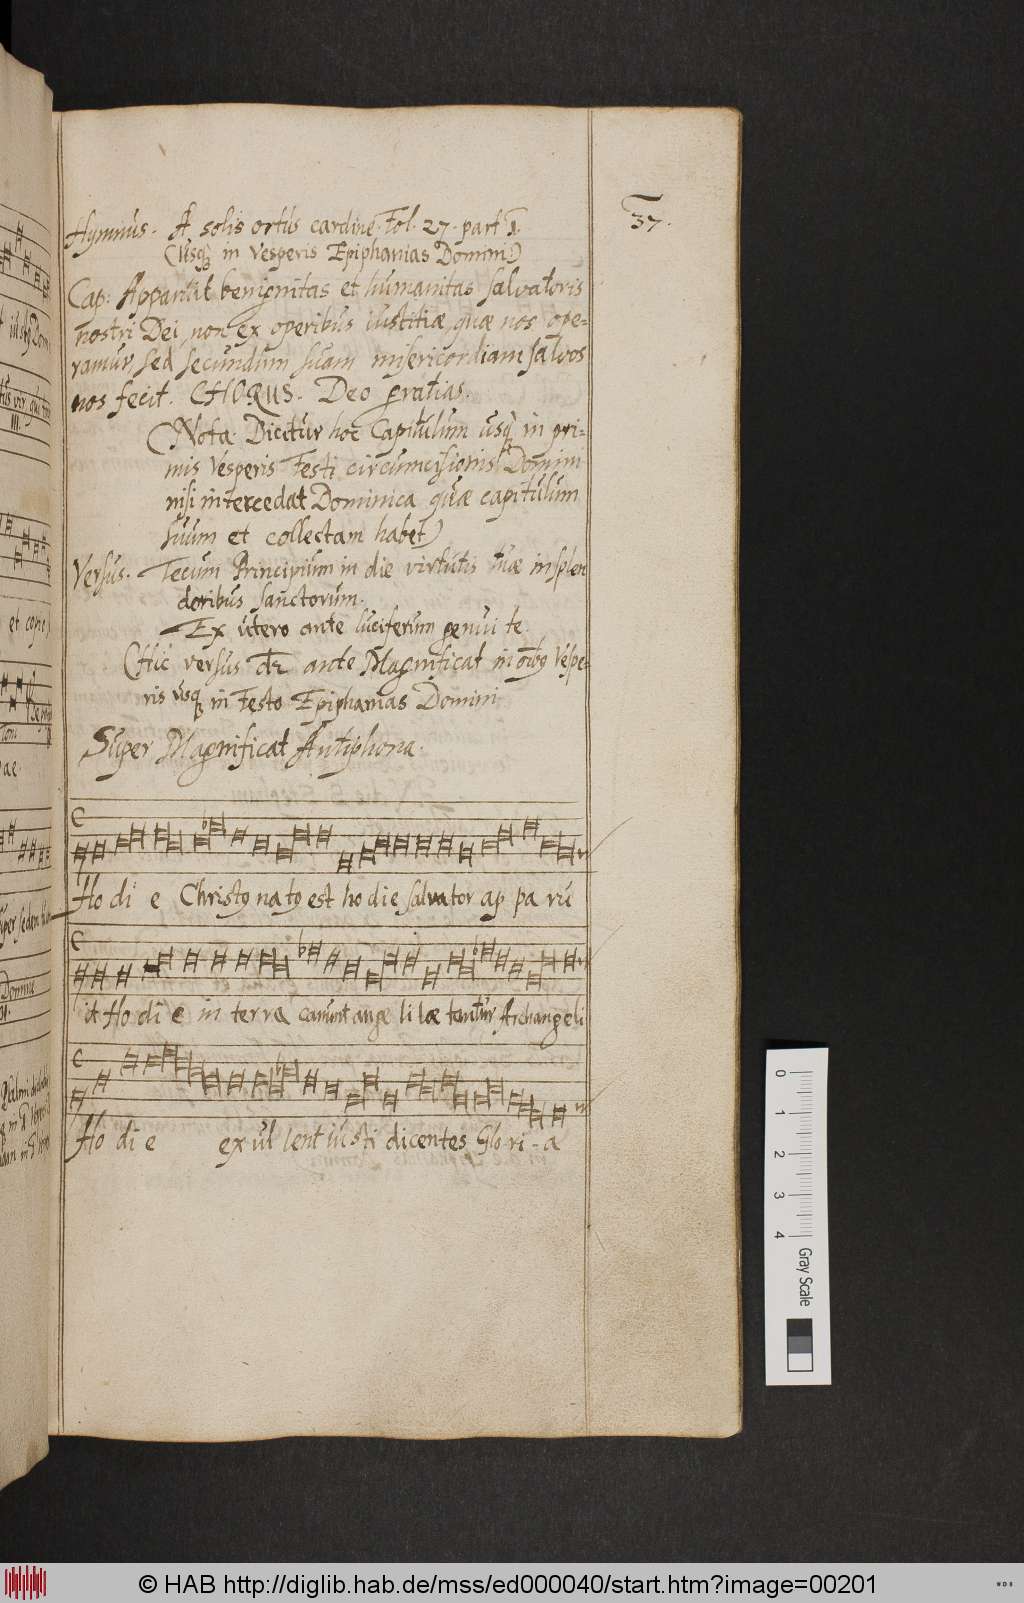 37.
Hymnus. A solis ortus cardine. Fol. 27. part 1.
(Usq in Vesperis Epiphanias Domini)
Cap: Apparuit benignitas et humanitas salvatoris
nostri Dei, non ex operibus iustitiæ, quæ nos ope-
ramur, sed secundum suam misericordiam salvos
nos fecit. CHORUS. Deo gratias.
(Nota: Dicitur hoc Capitulum usq in pri-
mis Vesperis Festi circumcisionis Domini
nisi intercedat Dominica quæ capitulum
suum et collectam habet)
Versus. Tecum Principium in die virtutis tuæ in splen
doribus sanctorum.
Ex utero ante luciferum genui te.
(Hic versus dr ante Magnificat in oïbg Vespe-
ris usq in Festo Epiphanias Domini
Super Magnificat Antiphona.
Ho di e Christg natg est ho die salvator ap pa ru
it Ho di e in terra canunt ange li læ tantur Archangeli
Ho di e ex ul lent iusti dicentes Glo-ri-a
0 1 2 3 4 Gray Scale
© HAB http://diglib.hab.de/mss/ed000040/start.htm?image=00201